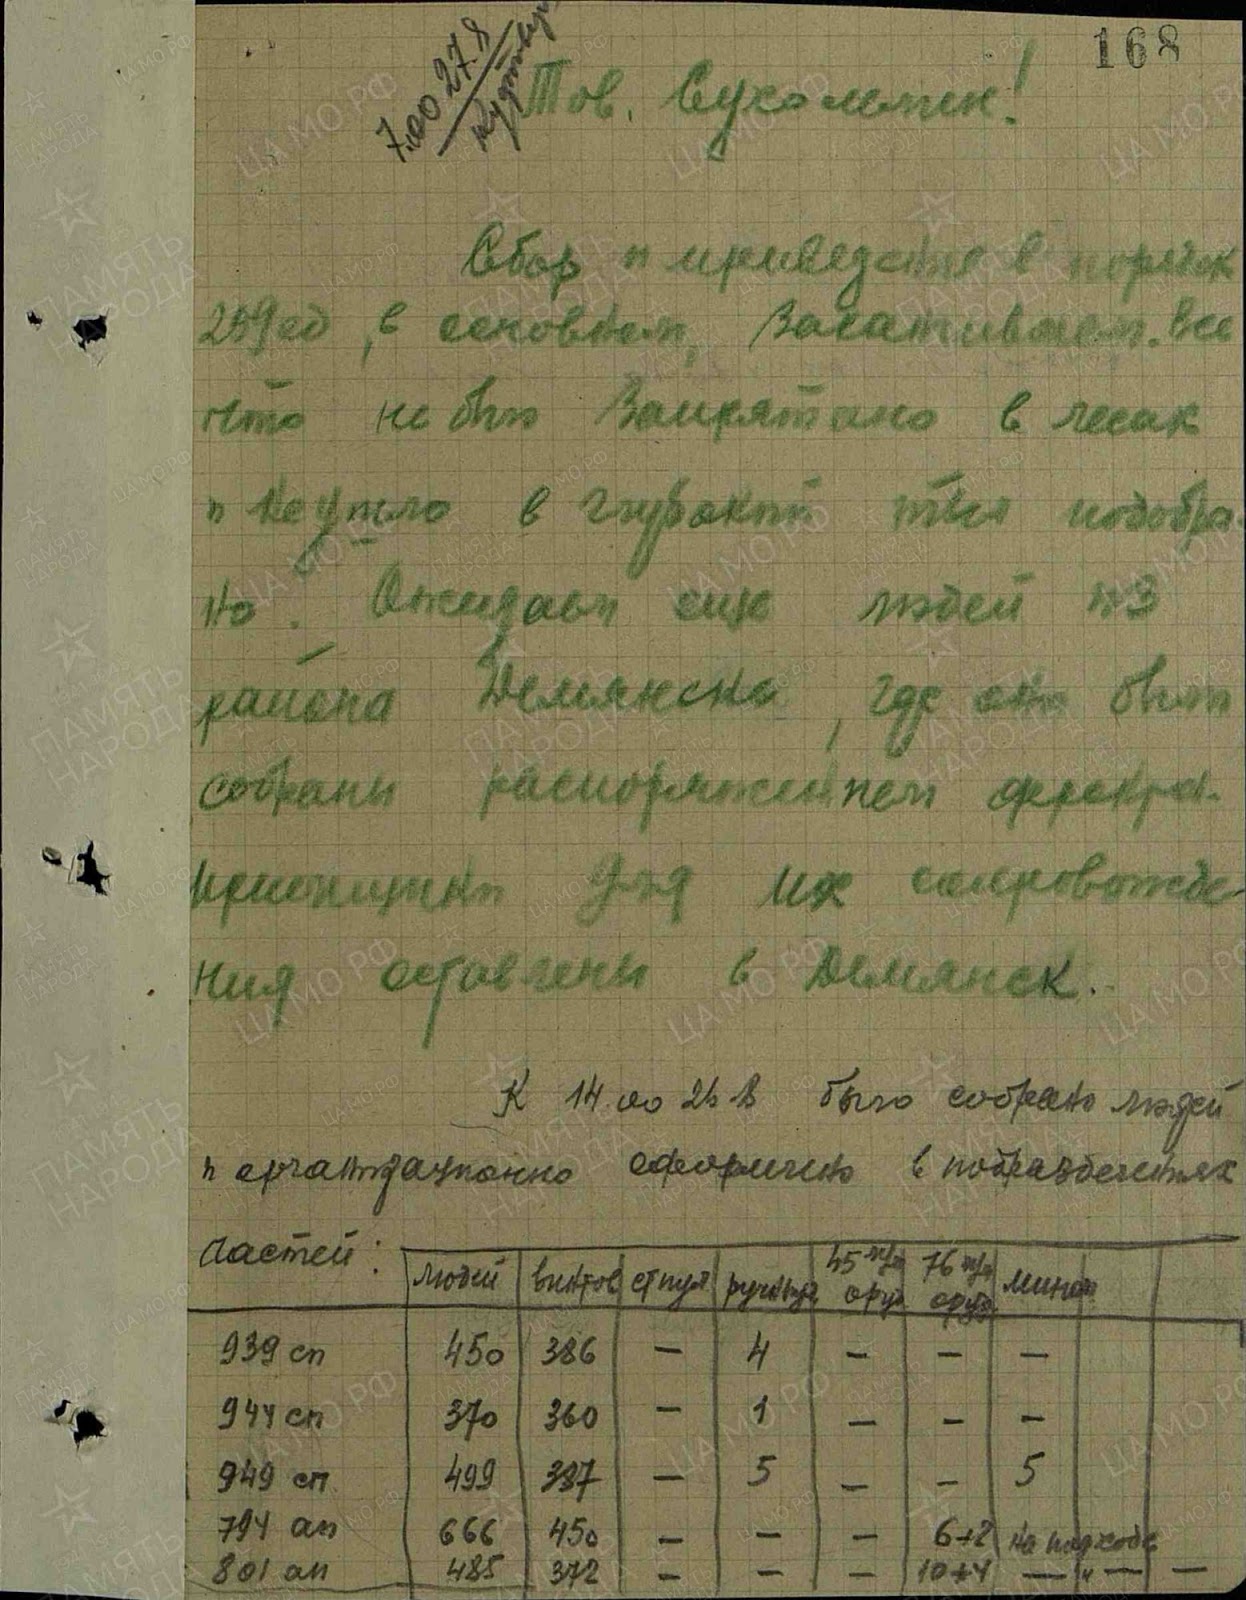 168
7.00 27.8
Тов. Сухомлин!
Сбор и приведение в порядок
259 сд, в основном, заканчиваем. Все
что не было запрятано в лесах
и не ушло в глубокий тыл подобра-
но. Ожидаем еще людей из
района Демянска, где они были
собраны распоряжением фронта.
Приемщики для их сопровожде-
ния оставлены в Демянск.
К 14.00 26.8 было собрано людей
и организационно оформлено в подразделениях
частей:
людей винтов ст пул ручных 45 м/м оруд 76 м/м оруд. мином
939 сп 450 386 — 4 — — —
944 сп 370 360 — 1 — — —
949 сп 499 387 — 5 — — 5
794 ап 666 450 — — — 6+2 на подходе
801 ап 485 372 — — — 10+4 — " — —